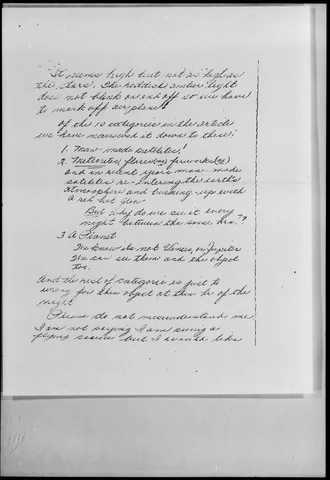 It seems high but not as high as
the stars. The reddish amber light
does not blink on and off so we have
to mark off airplane!
Of the 10 categories in the article
we have narrowed it down to these:
1. Man-made satellites!
2. Meteorites, flares(no) fireworks(no)
and in recent years man-made
satellites re-intering the earth's
atmosphere and burning up with
a red hot glow
But why do we see it every
night between the same hrs.??
3 A Planet
We know its not Venus, or Jupiter
We can see them and the object
too.
And the rest of categorie is just to
wrong for this object at this hr of the
night
Please do not missunderstand me
I am not saying I am seeing a
flying saucer but I would like